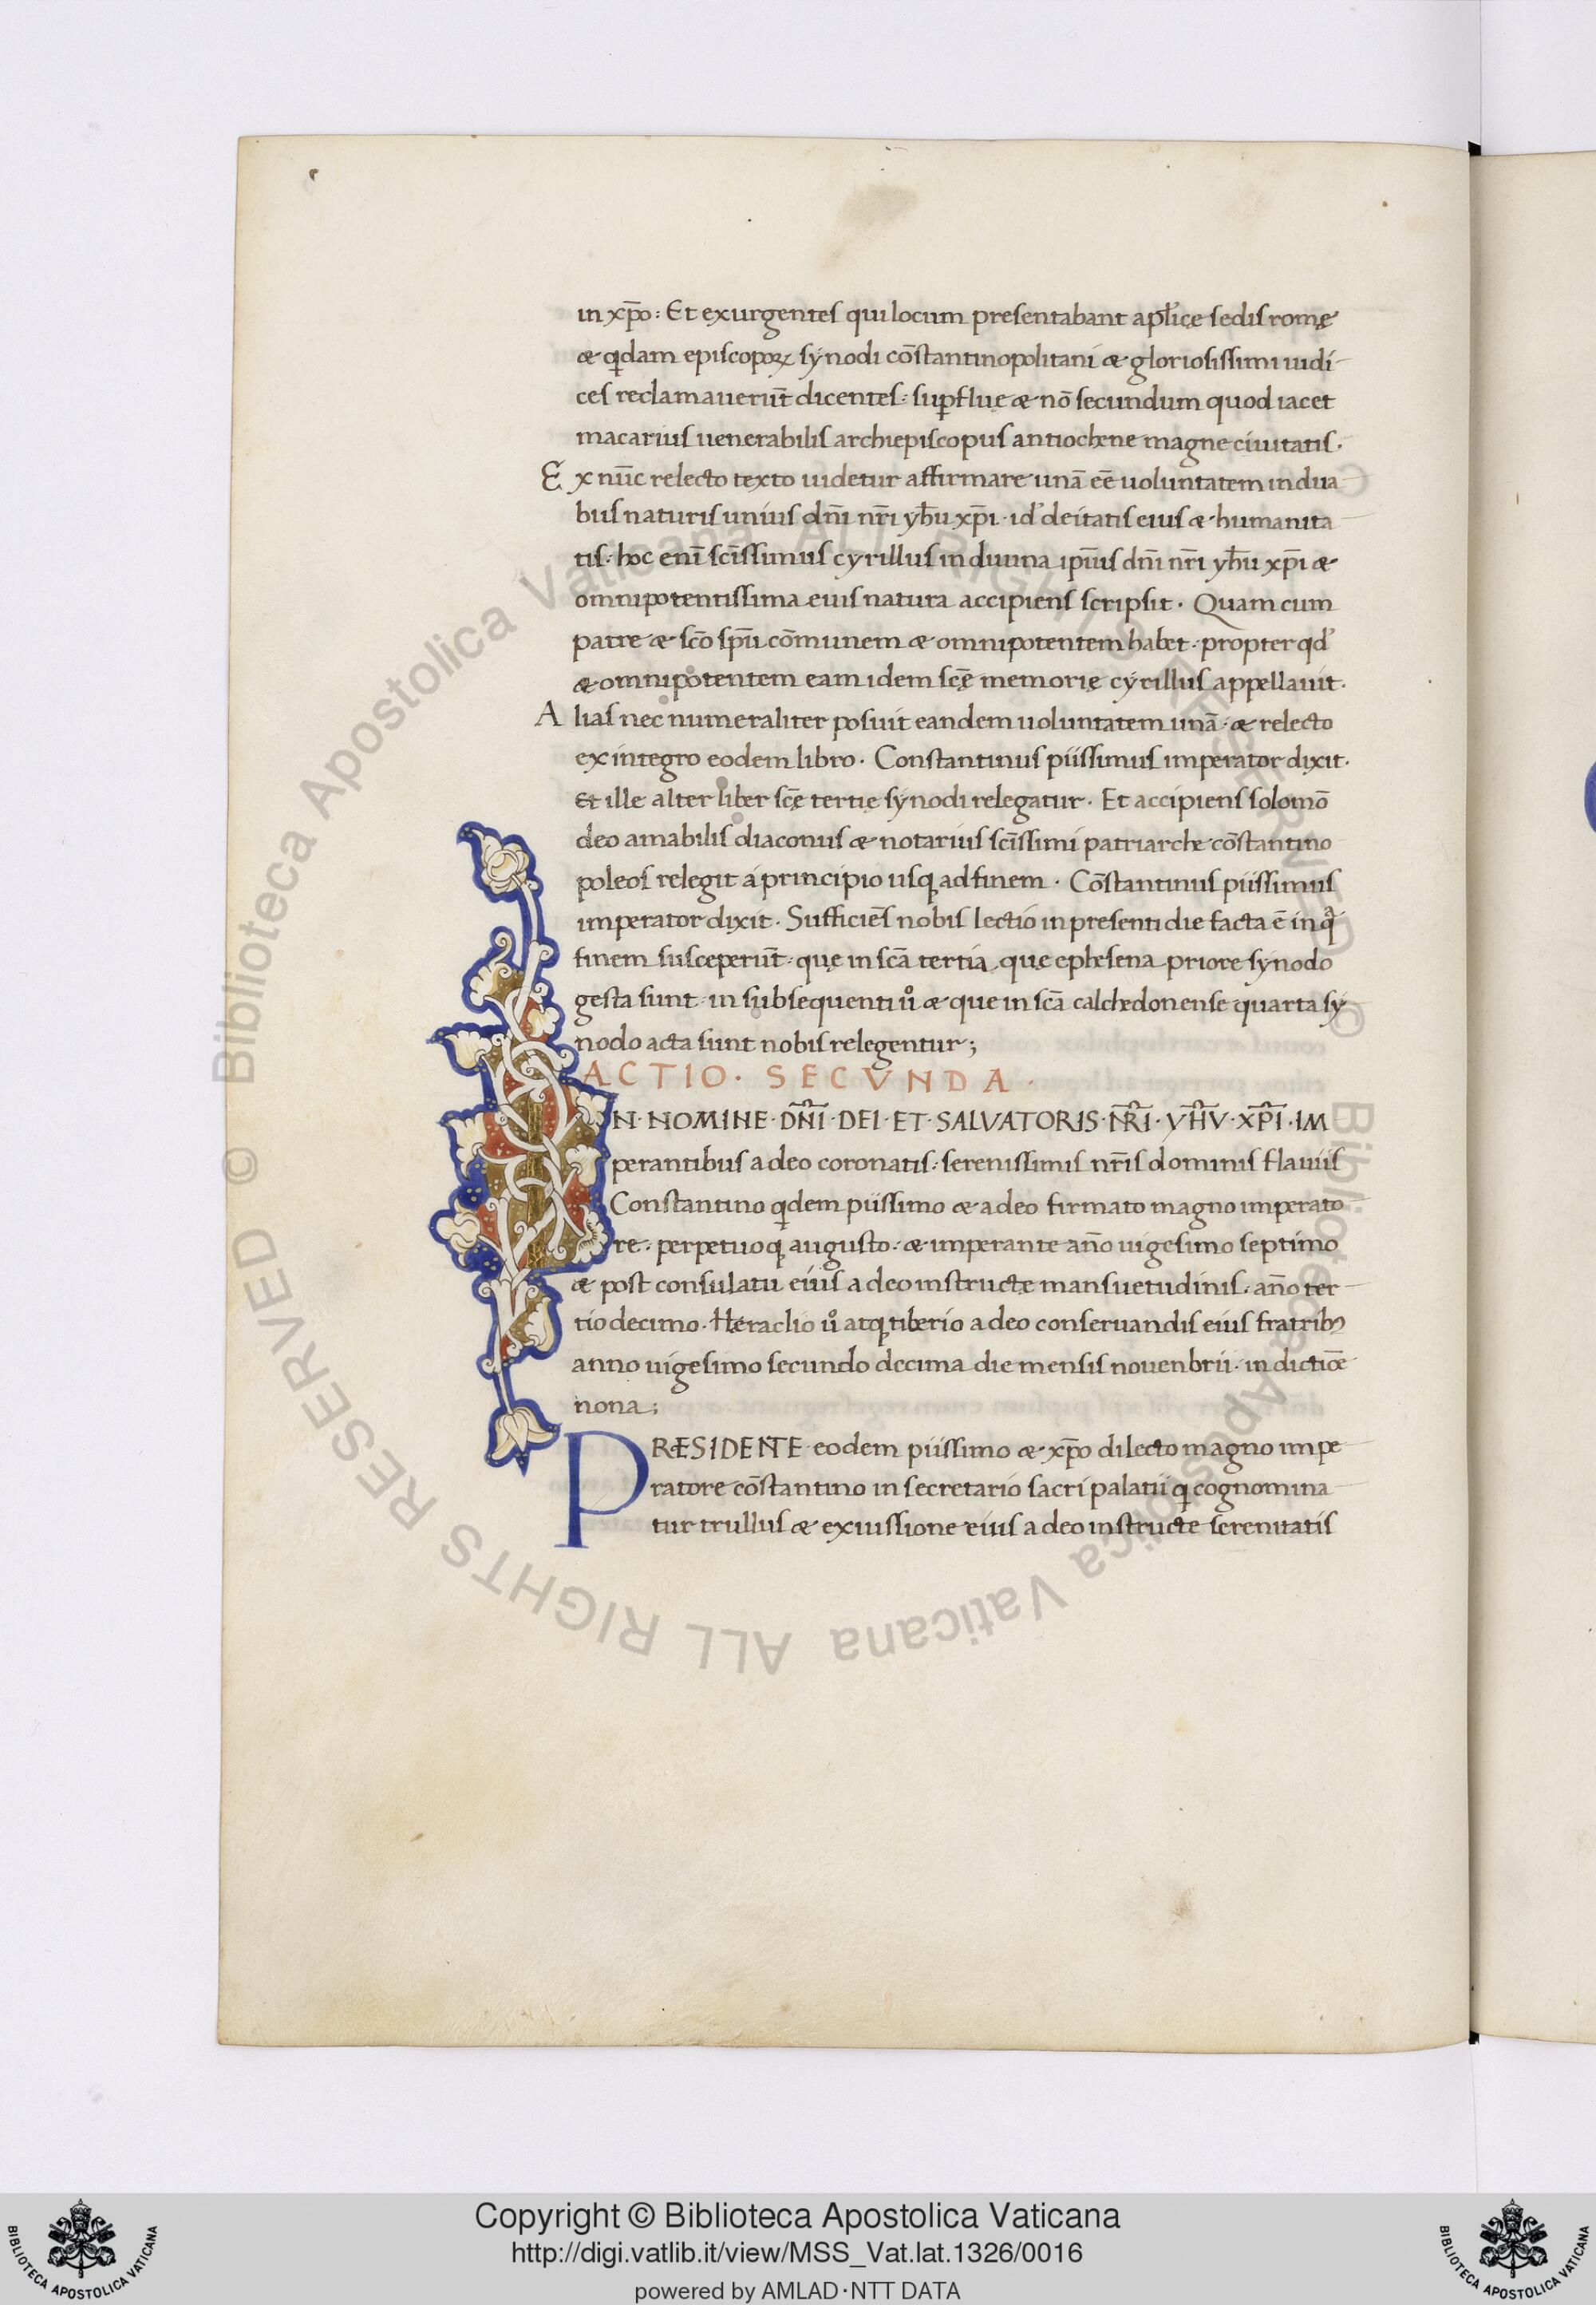 in xp̄o: Et exurgentes qui locum presentabant apl̄icę sedis romę
& qdam episcopoꝝ synodi cōstantinopolitani & gloriosissimi iudi-
ces reclamauerūt dicentes: supflue & nō secundum quod iacet
macarius uenerabilis archiepiscopus antiochene magne ciuitatis.
Ex nūc relecto texto uidetur affirmare unā eē uoluntatem in dua
bus naturis unius dn̄i nr̄i yh̄u xp̄i. id̕ deitatis eius & humanita
tis: hoc enī scīssimus cyrillus in diuina ip̄ius dn̄i nr̄i yh̄u xp̄i &
omnipotentissima eius natura accipiens scripsit. Quam cum
patre & scō sp̄u cōmunem & omnipotentem habet. propter qd̕
& omnipotentem eam idem scę̄ memorię cyrillus appellauit.
Alias nec numeraliter posuit eandem uoluntatem unā. & relecto
ex integro eodem libro. Constantinus piissimus imperator dixit.
Et ille alter liber scę̄ tertię synodi relegatur. Et accipiens solomō
deo amabilis diaconus & notarius scīssimi patriarche cōstantino
poleos relegit á principio usq; ad finem. Cōstantinus piissimus
imperator dixit. Sufficiēs nobis lectio in presenti die facta ē in q̊
finem susceperūt: quę in scā tertia, quę ephesena priore synodo
gesta sunt. in subsequenti ů & que in scā calchedonense quarta sy
nodo acta sunt nobis relegentur;
ACTIO. SECVNDA.
IN NOMINE DN̄I DEI ET SALVATORIS NR̄I YH̄V XP̄I IM
perantibus a deo coronatis: serenissimis nr̄is dominis flauiis
Constantino qdem piissimo & a deo firmato magno imperato
re: perpetuoq; augusto: & imperante an̄o uigesimo septimo
& post consulatu eius a deo instructę mansuetudinis. an̄o ter-
tio decimo. Heraclio ů atq; tiberio a deo conseruandis eius fratribꝫ
anno uigesimo secundo decima die mensis nouenbrii. indictiōe
nona;
PRÆSIDENTE eodem piissimo & xp̄o dilecto magno impe
ratore cōstantino in secretario sacri palatii q cognomina
tur trullus & ex iussione eius a deo instructe serenitatis
© Biblioteca Apostolica Vaticana ALL RIGHTS RESERVED
© Biblioteca Apostolica Vaticana ALL RIGHTS RESERVED
Copyright © Biblioteca Apostolica Vaticana
http://digi.vatlib.it/view/MSS_Vat.lat.1326/0016
powered by AMLAD·NTT DATA
BIBLIOTECA APOSTOLICA VATICANA
BIBLIOTECA APOSTOLICA VATICANA